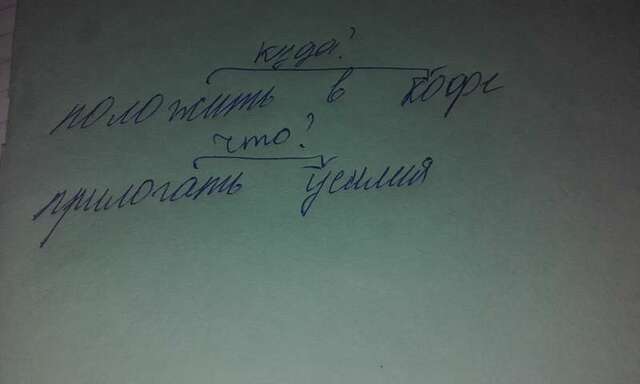 куда?
положить в кофе
что?
прилогать усилия